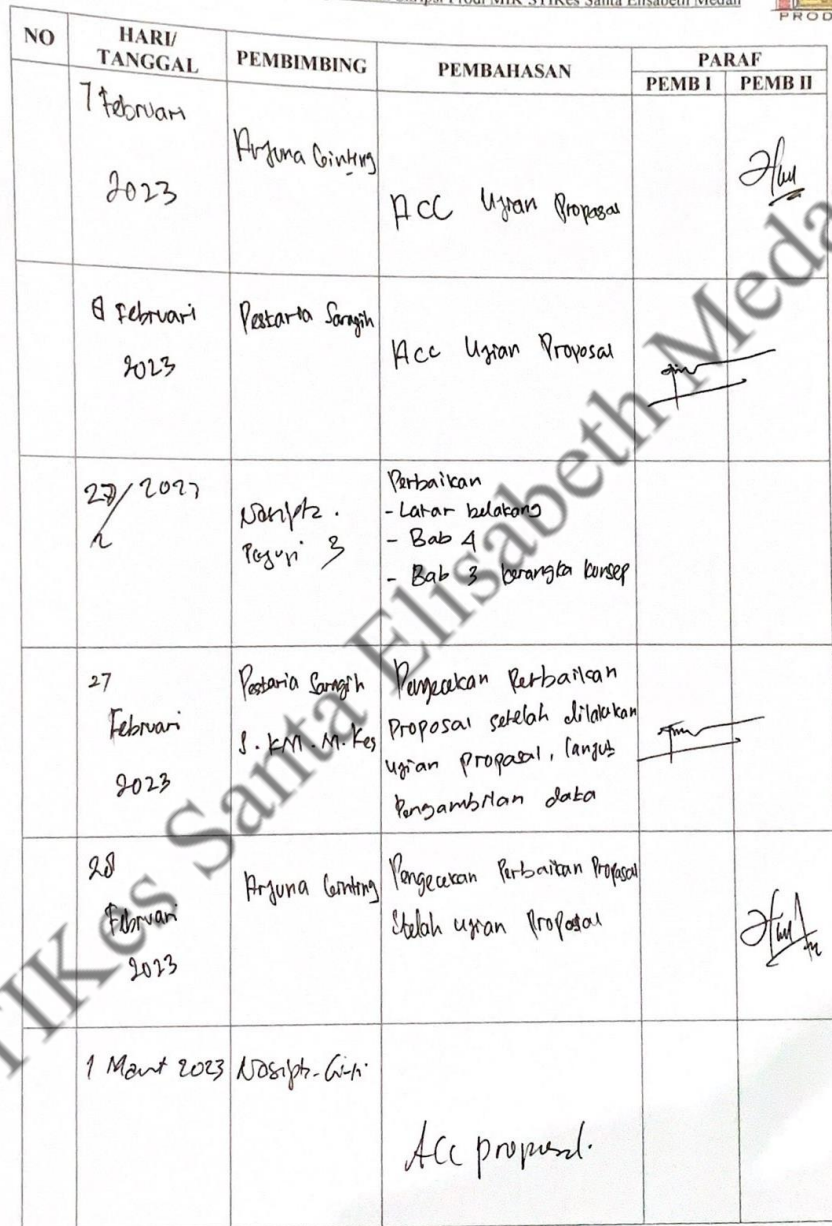 Skripsi Prodi MIK STIKes Santa Elisabeth Medan
PROD
NO
HARI/
TANGGAL
PEMBIMBING
PEMBAHASAN
PARAF
PEMB I
PEMB II
7 Februari
2023
Arjuna Ginting
ACC Ujian Proposal
8 Februari
2023
Pestaria Saragih
Acc Ujian Proposal
27/ 2023
2
Nasipta.
Penguji 3
Perbaikan
- Latar belakang
- Bab 4
- Bab 3 kerangka konsep
27
Februari
2023
Pestaria Saragih
S.KM.M.Kes
Pengecekan Perbaikan
Proposal setelah dilakukan
ujian proposal, lanjut
Pengambilan data
28
Februari
2023
Arjuna Ginting
Pengecekan Perbaikan Proposal
Stelah ujian Proposal
1 Maret 2023
Acc proposal.
STIKes Santa Elisabeth Medan